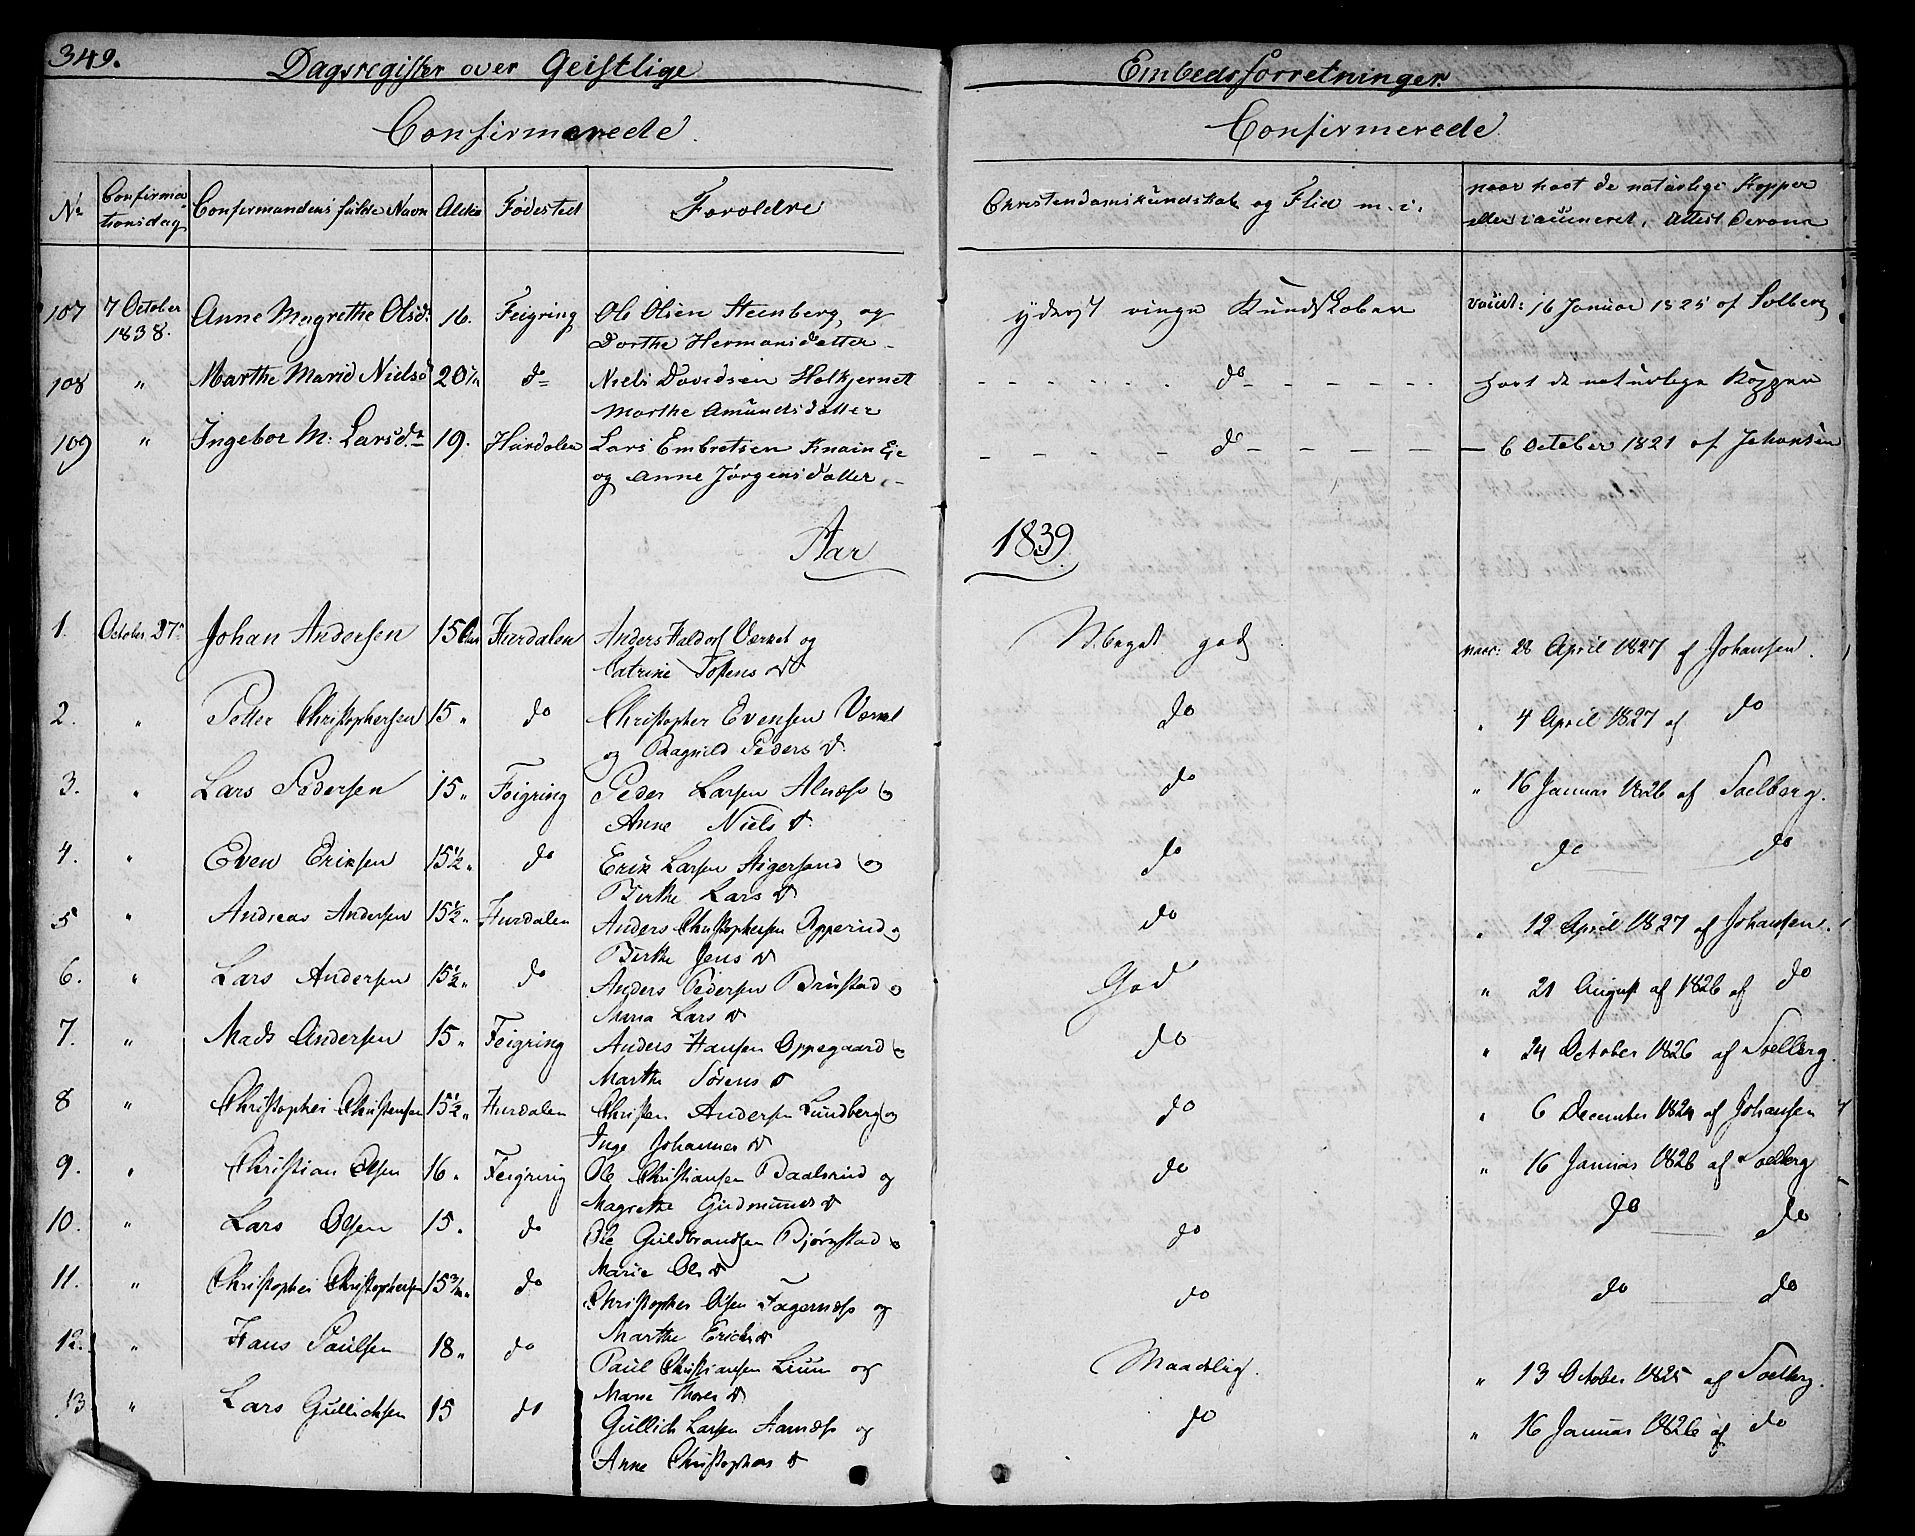 349.
Dagsregister over Geistlige Embedsforretninger.
Confirmerede. Confirmerede.
No Confirmationsdag Confirmandens fulde Navn Alder Fødested Foroldre Christendomskundskab og Flid m. i. naar havt de naturlige Kopper eller vaccineret, Attest Derom
107 7 October 1838. Anne Magrethe Olsdr 16. Feigring Ole Olsen Steenberg og yderst ringe Kundskaber vaccit: 16 Januar 1825 af Solberg
Dorthe Hermansdatter
108 " Marthe Marie Nielsd 20 do Niels Davidsen Holkjernet do havt de naturlige Kopper
Marthe Amundsdatter
109 " Ingebor M: Larsdr 19. Hurdalen Lars Embretsen Knain Eie do 6 October 1821 af Johansen
og Anne Jørgensdatter
Aar 1839.
1. October 27. Johan Andersen 15 Aar Hurdalen Anders Værket og Meget god vacc: 28 April 1827 af Johansen.
Catrine D
2. " Petter Christophersen 15 " do Christopher Evensen Værket do " 4 April 1827 af do
og Ragnild Peders D.
3. " Lars Pedersen 15 " Feigring Peder Larsen Alnæss og do " 16 Januar 1826 af Soelberg.
Anne Niels D.
4. " Even Eriksen 15½ " do Erik Larsen Stigersand og do do do
Birthe Lars D
5 " Andreas Andersen 15½ " Hurdalen Anders Christophersen Opperud og do " 12 April 1827 af Johansen.
Birthe Jens D
6. " Lars Andersen 15½ " do Anders Pedersen Brustad og God " 21 August af 1826 af do
Maria Lars D
7. " Mads Andersen 15 " Feigring Anders Hansen Oppegaard og do " 24 October 1826 af Soelberg.
Marthe Sørens D
8 " Christopher Christensen 15½ " Hurdalen Christen Andersen Lundberg og do " 6 December 1824 af Johansen
Inge Johannes D
9. " Christian Olsen 16 " Feigring Ole Christiansen Baalsrud og do " 16 Januar 1826 af Soelberg
Magrethe Gudmunds D
10. " Lars Olsen 15 " do Ole Guldbrandsen Bjørnstad og do do do
Marie Ols D
11. " Christopher Christophersen 15¾ " do Christopher Olsen Fagernæss og do do do
Marthe Erichs D
12. " Hans Paulsen 18 " do Paul Christiansen Liuun og Maadelig. " 13 October 1825 af Soelberg.
Marie Thores D
13 " Lars Gullichsen 15 do Gullich Larsen Aarnæss og do " 16 Januar 1826 af do
Anne Christophers D